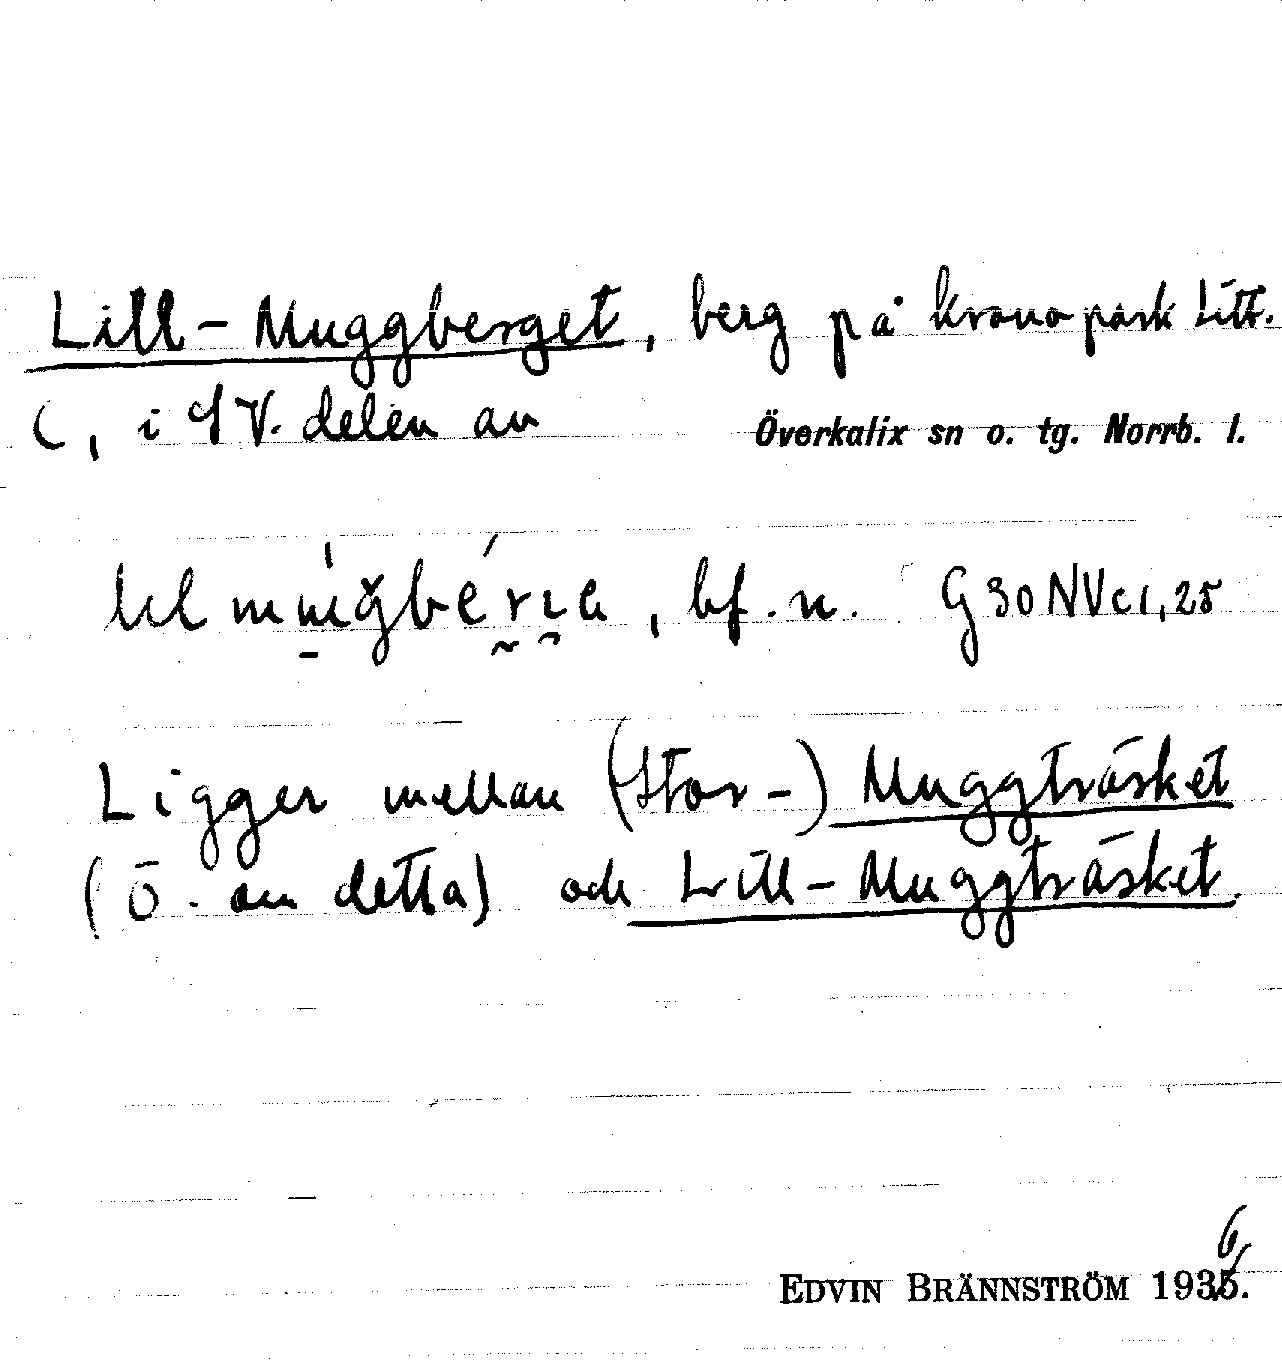 Lill-Muggberget, berg på kronopark Litt.
C, i SV. delen av Överkalix sn o. tg. Norrb. l.
bf. n. G 30 NV c 1, 25
Ligger mellan (Stor-) Muggträsket
(Ö. om detta) och Lill-Muggträsket.
EDVIN BRÄNNSTRÖM 1936.